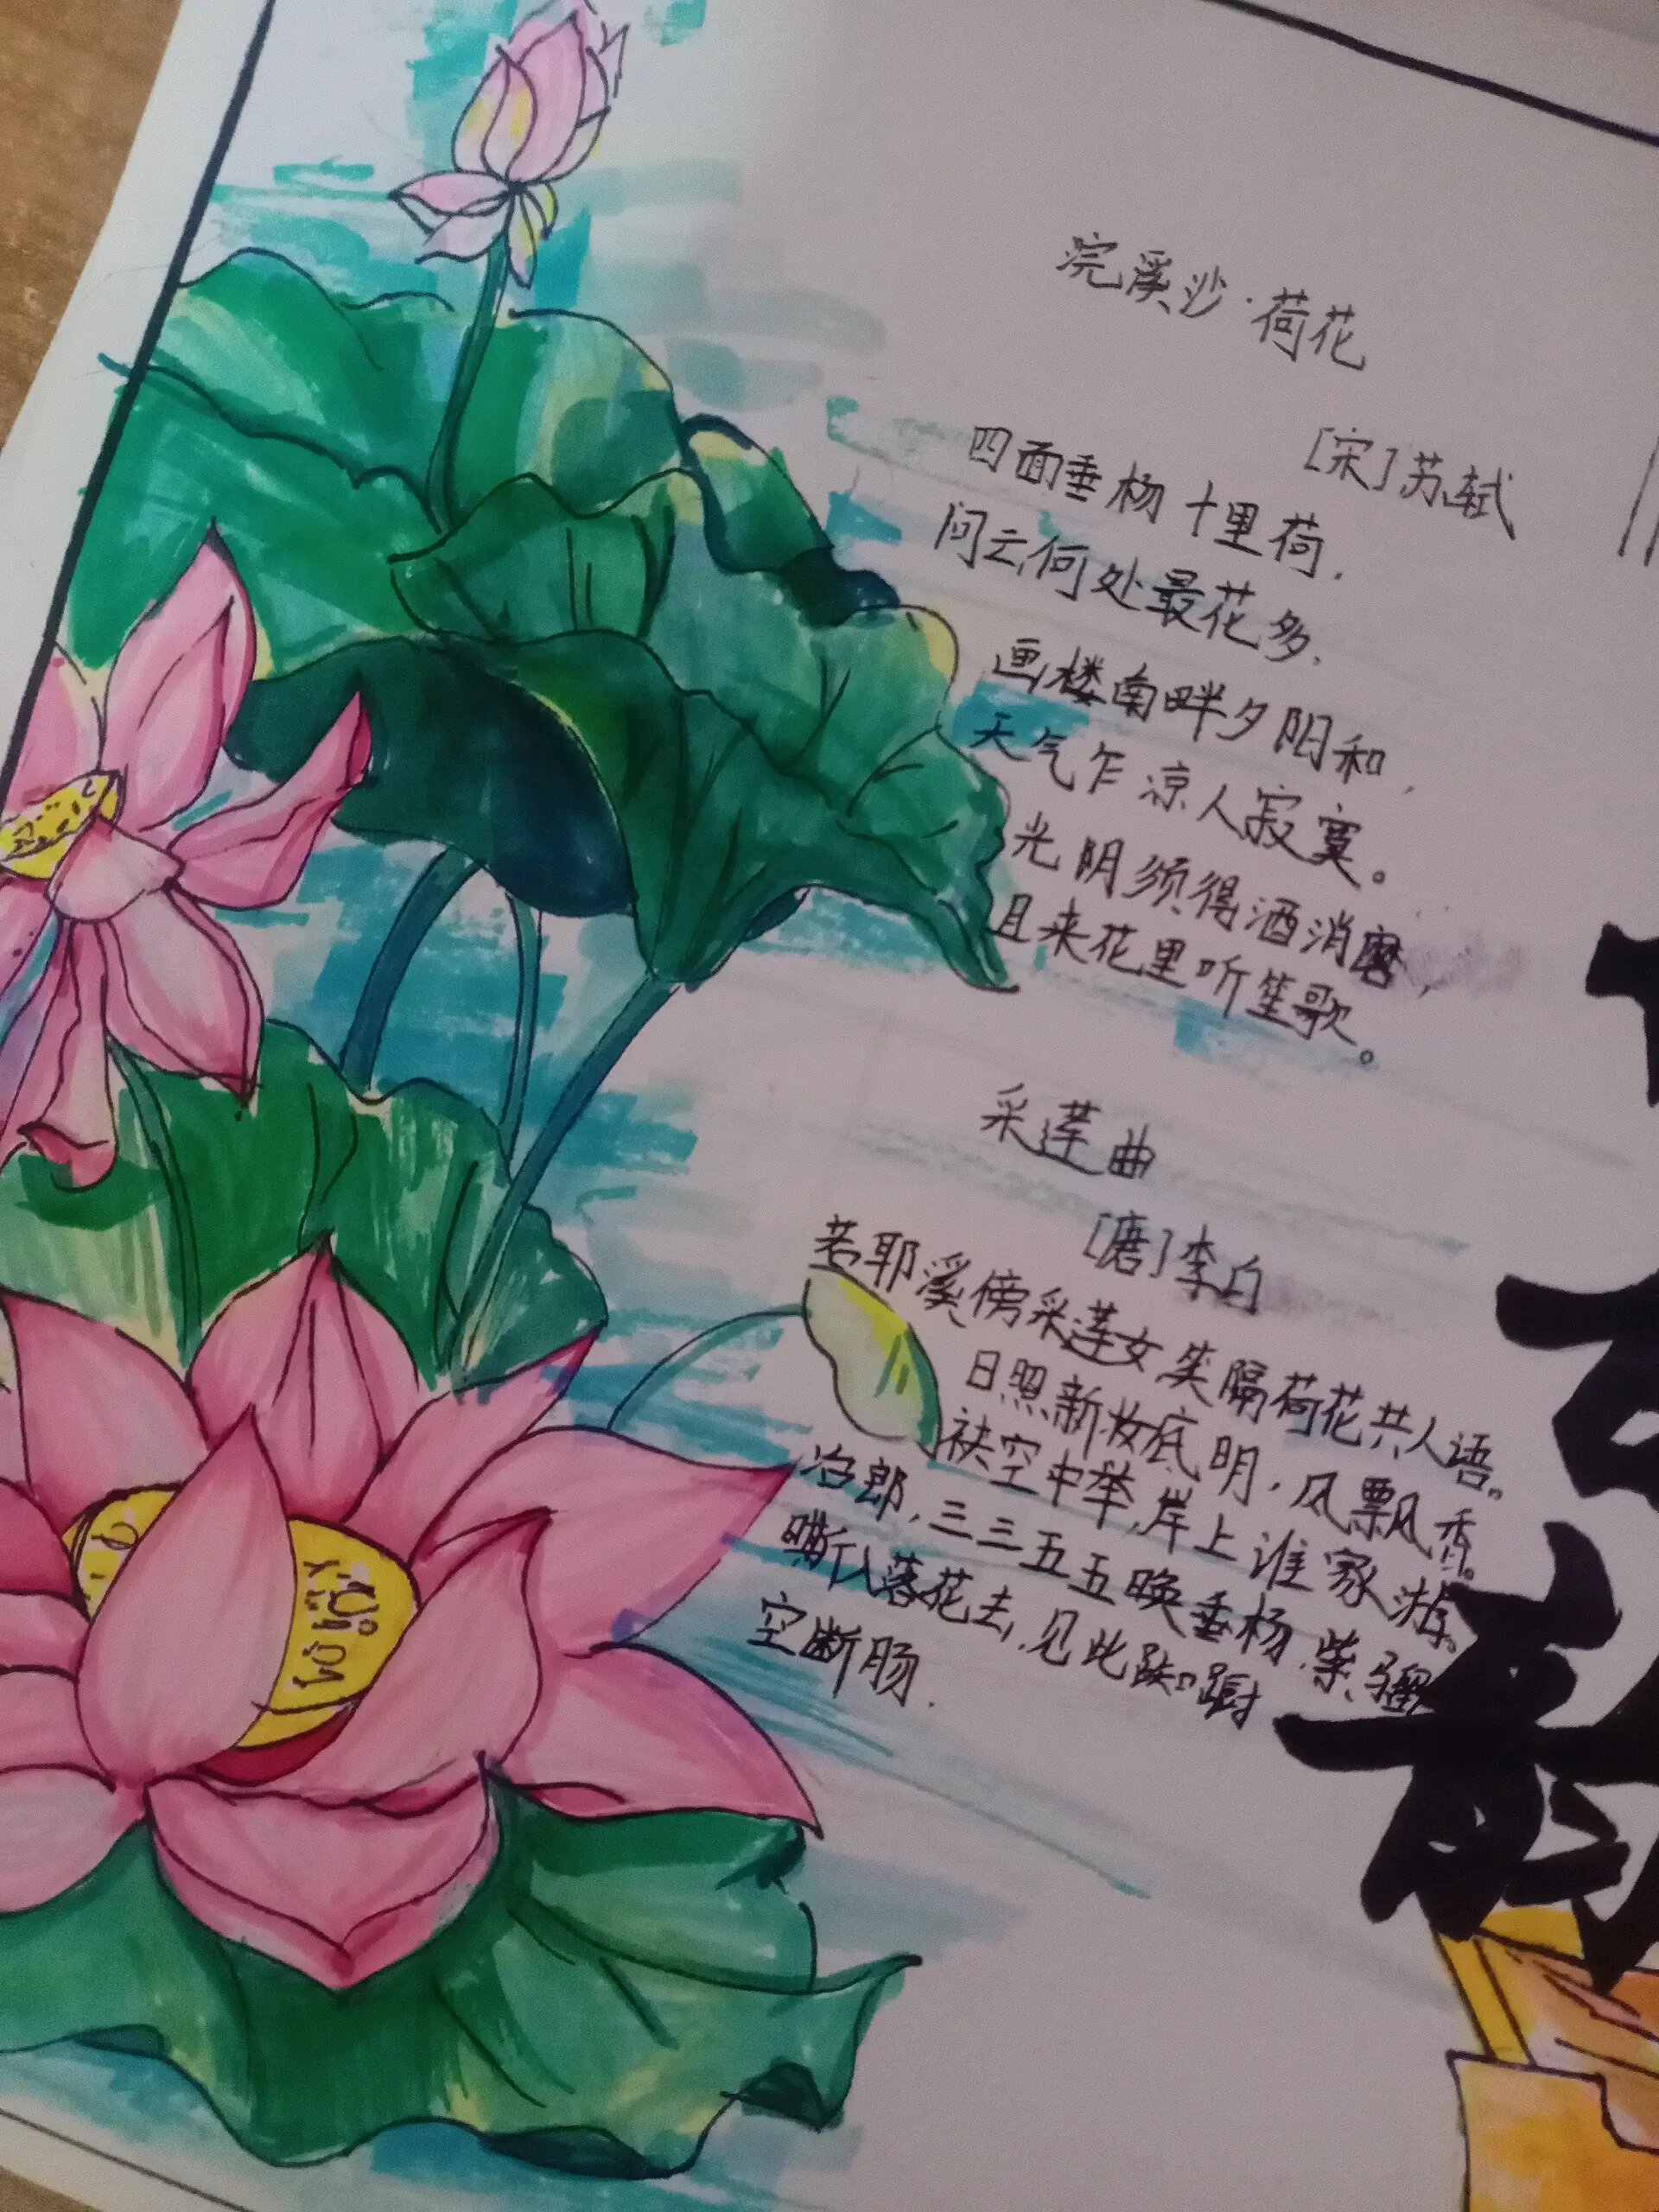 浣溪沙·荷花
[宋]苏轼
四面垂杨十里荷.
问云何处最花多.
画楼南畔夕阳和,
天气乍凉人寂寞。
光阴须得酒消磨,
且来花里听笙歌。
采莲曲
[唐]李白
若耶溪傍采莲女,笑隔荷花共人语。
日照新妆底明,风飘香
袂空中举,岸上谁家游
冶郎,三三五五映垂杨.紫骝
嘶入落花去,见此踟蹰
空断肠.
韵